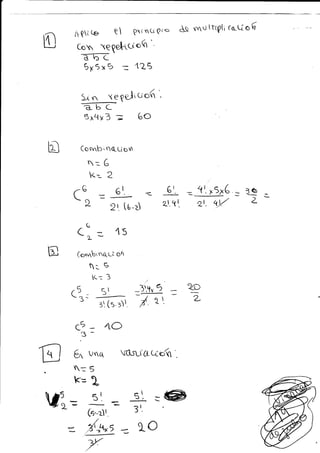 1 Aplico el principio de multiplicación
Con repetición:
a b c
5x5x5 = 125
Sin repetición:
a b c
5x4x3 = 60
2 Combinación
n= 6
k= 2
C 6 2 = 6! / 2! (6-2)! = 6! / 2! 4! = 4! x5x6 / 2! 4! = 30 / 2 =
C 6 2 = 15
3 Combinación
n= 5
k= 3
C 5 3 = 5! / 3! (5-3)! = 3! 4x5 / 3! 2! = 20 / 2
C 5 3 = 10
4 En una variación:
n= 5
k= 2
V 5 2 = 5! / (5-2)! = 5! / 3! =
= 3! 4x5 / 3! = 20